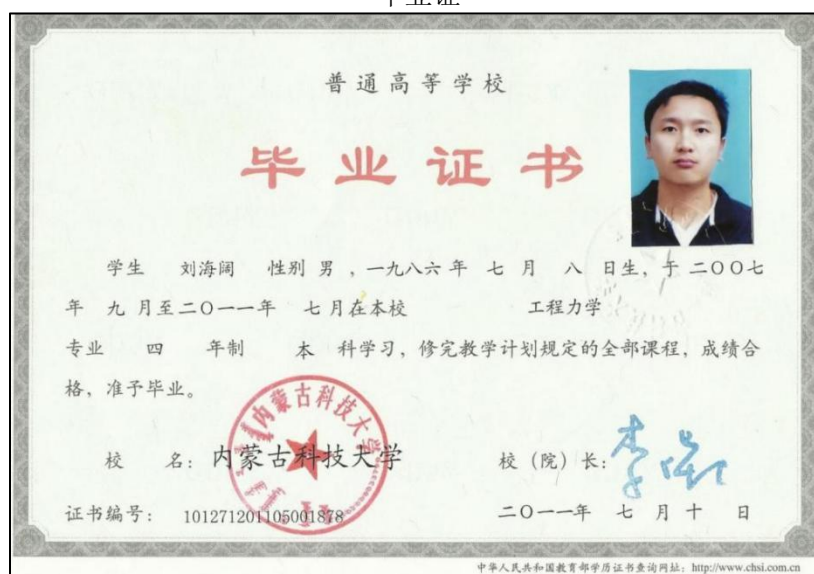 普通高等学校
毕业证书
学生 刘海阔 性别 男 ，一九八六 年 七 月 八 日生，于 二〇〇七
年 九 月至二〇一一年 七 月在本校 工程力学
专业 四 年制 本 科学习，修完教学计划规定的全部课程，成绩合
格，准予毕业。
内蒙古科技大学
校 名：内蒙古科技大学 校（院）长：
证书编号： 101271201105001878 二〇一一年 七 月 十 日
中华人民共和国教育部学历证书查询网址：http://www.chsi.com.cn